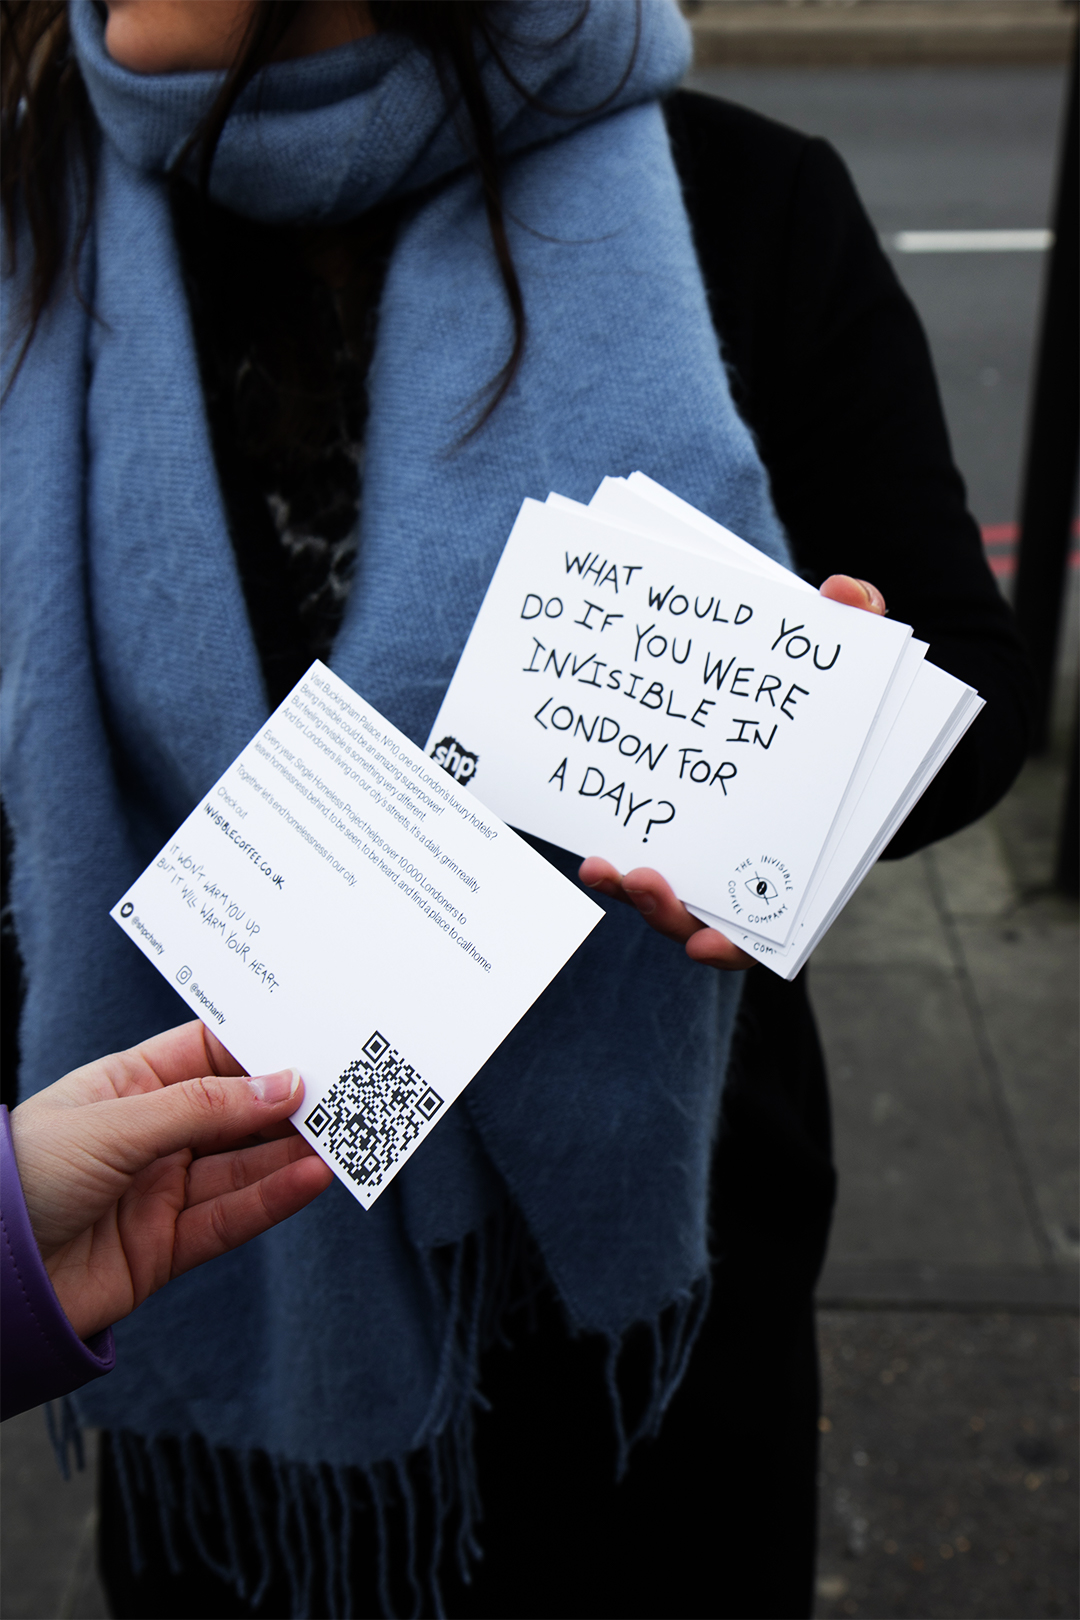 WHAT WOULD YOU
DO IF YOU WERE
INVISIBLE IN
LONDON FOR
A DAY?
shp
THE INVISIBLE
COFFEE COMPANY
COM
Visit Buckingham Palace, Nº10, one of London's luxury hotels?
Being invisible could be an amazing superpower!
But feeling invisible is something very different.
And for Londoners living on our city's streets, it's a daily, grim reality.
Every year, Single Homeless Project helps over 10,000 Londoners to
leave homelessness behind, to be seen, to be heard, and find a place to call home.
Together let's end homelessness in our city.
Check out
INVISIBLECOFFEE.CO.UK
IT WON'T WARM YOU UP
BUT IT WILL WARM YOUR HEART.
@shpcharity
@shpcharity